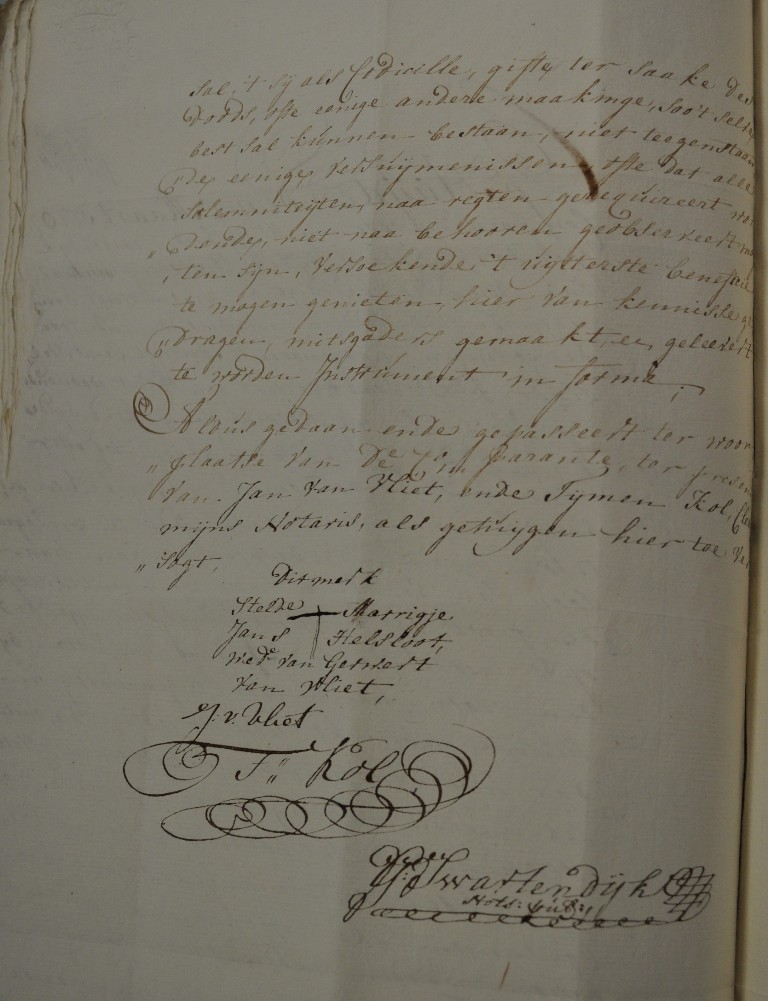 sal, 't sij als Codicille, gifte ter saake des
doods, ofte eenige andere maakinge, soo 't selve
best sal kunnen bestaan, niet teegenstaan
„de eenige versuijmenissen, ofte dat alle
solemniteijten, naa regten gerequireert wor
„dende, niet naa behooren geobserveert mo
„ten sijn, versoekende 't uijtterste beneficie
te mogen genieten, hier van kennisse ge
„dragen, mitsgaders gemaakt, en geleevert
te worden Instrument in forma,
Aldus gedaan ende gepasseert ter woon
„plaatse van de Comparante, ter presen
van Jan van Vliet, ende Tijmen Kol, Cler
mijns Notaris, als getuijgen hier toe ver
„sogt,
Dit merk
stelde Marrigje
Jans Helsloot,
wede. van Gerrert
van Vliet,
J. v. Vliet
T„ Kol
Swartendijk
Nots: Pub: